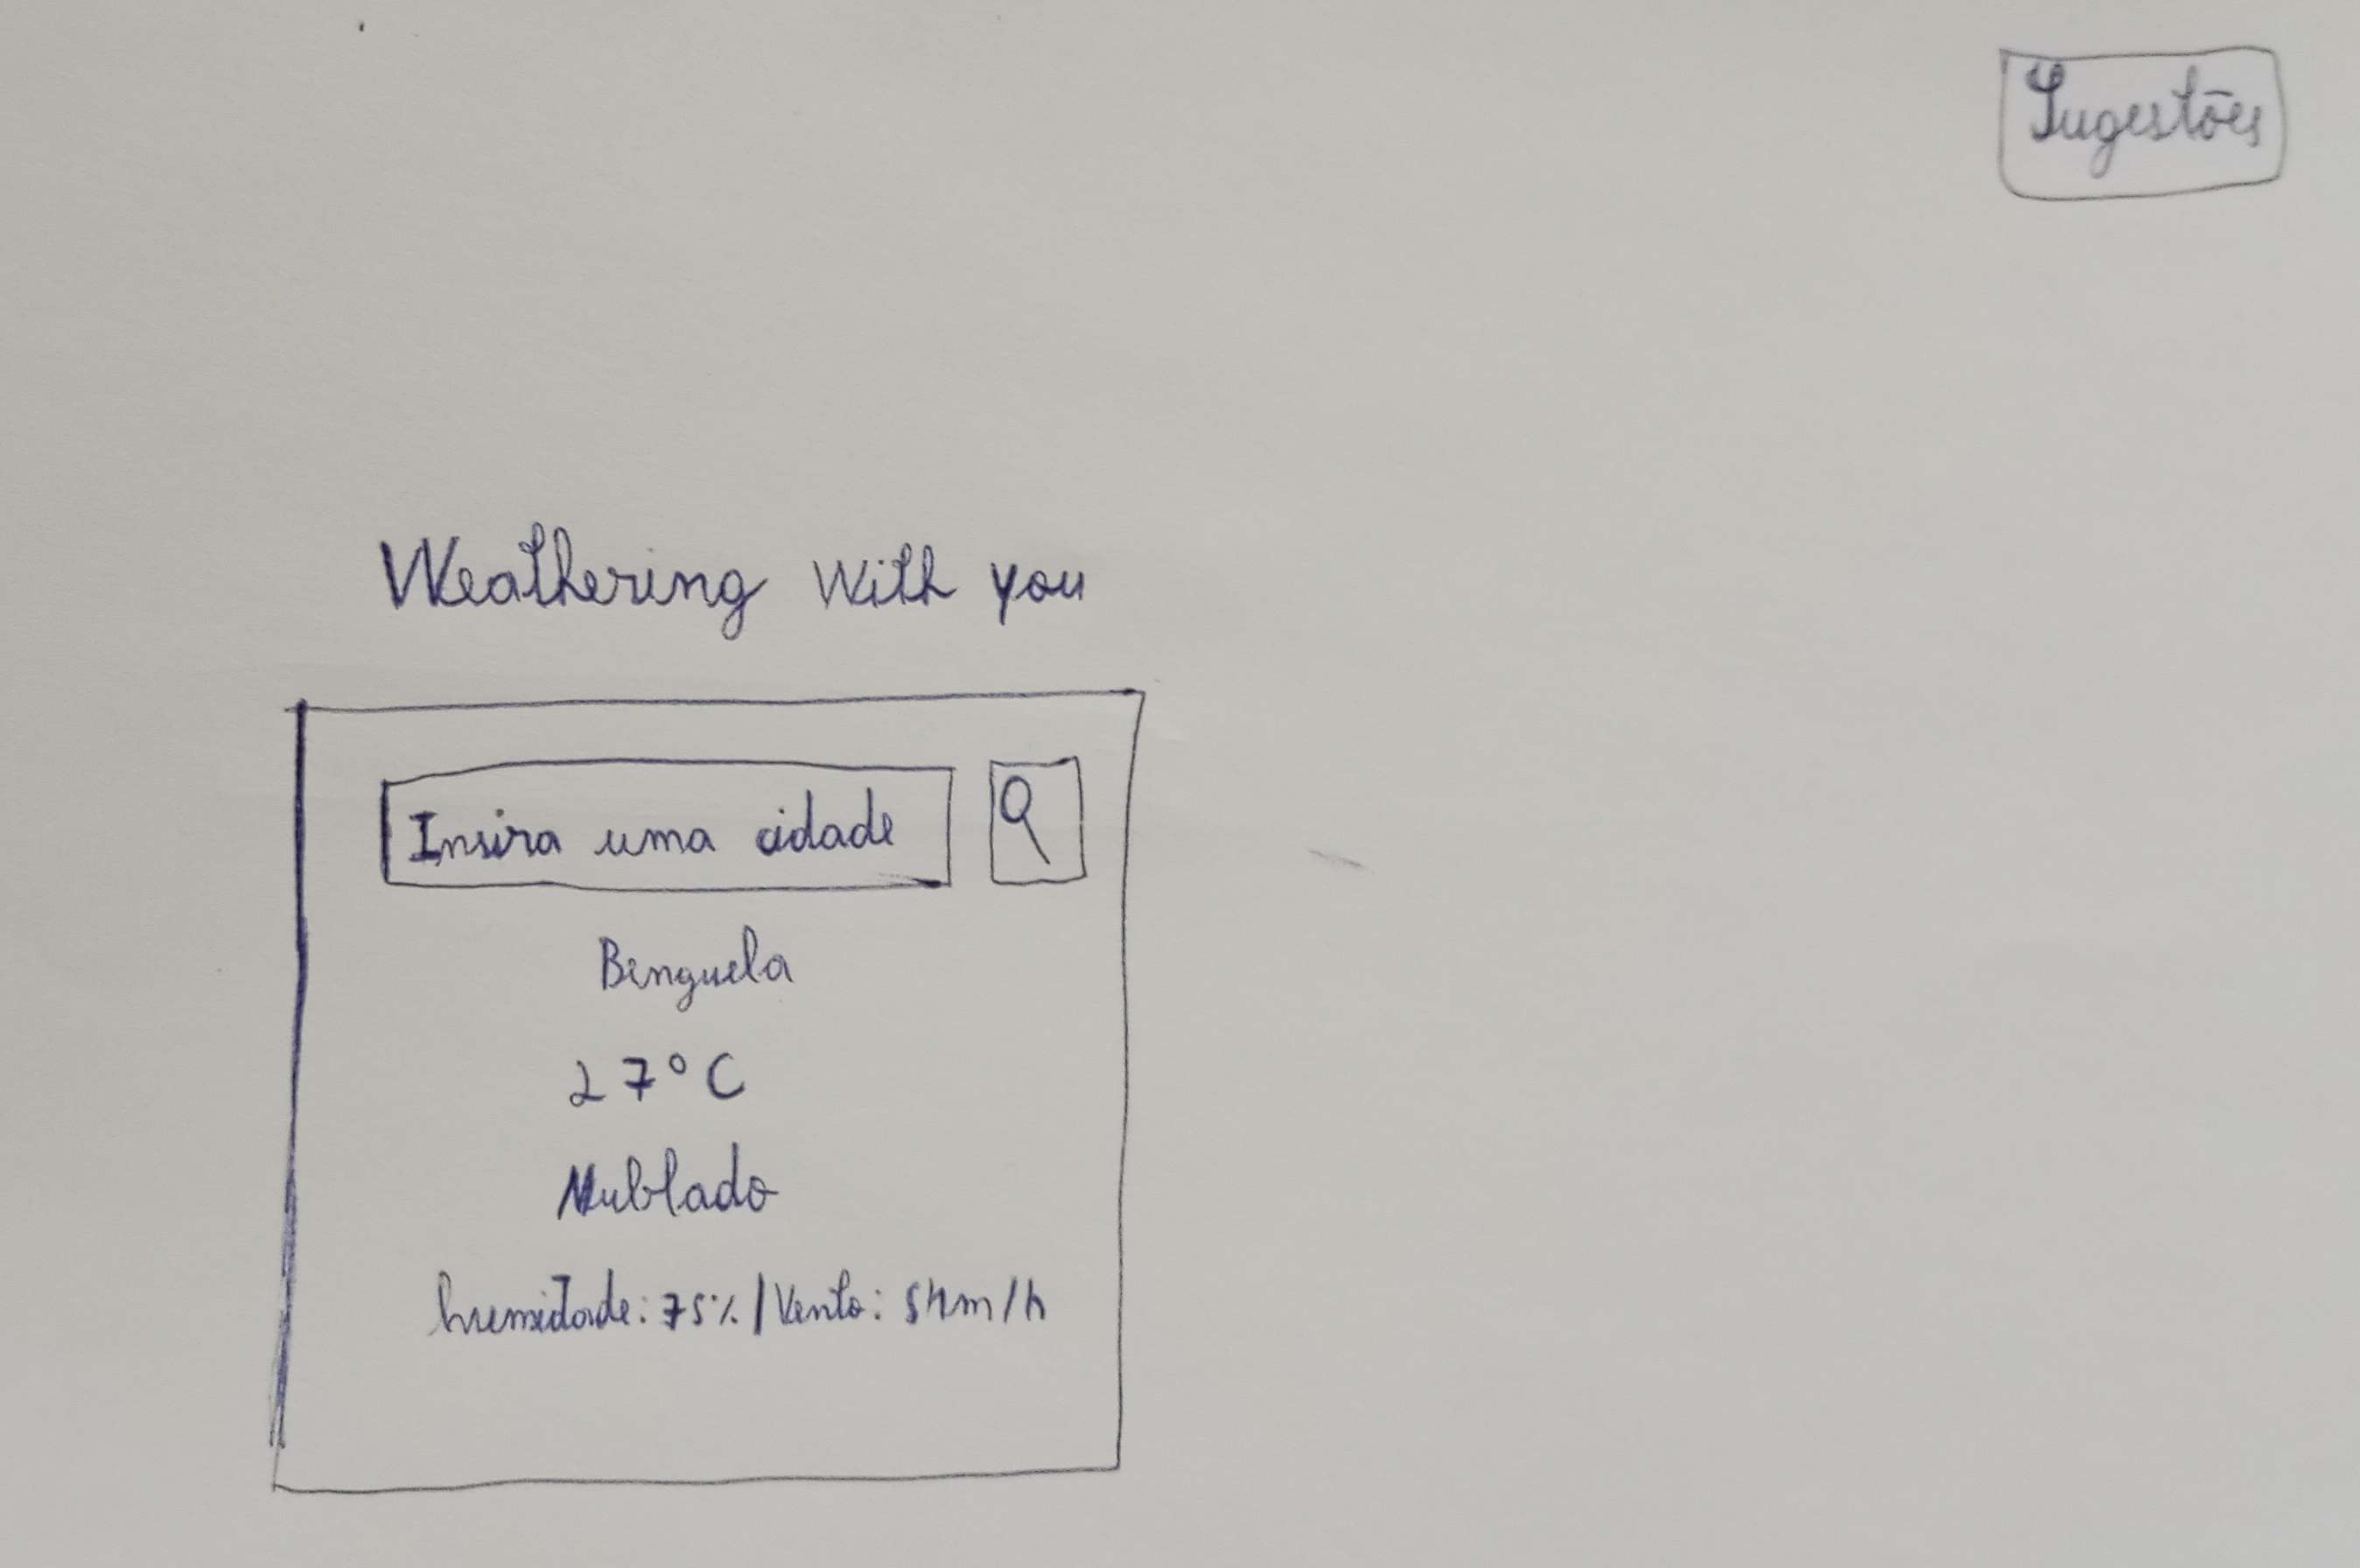 Sugestões
Weathering With you
Insira uma cidade
Benguela
27°C
Nublado
humidade: 75% | Vento: 5km/h